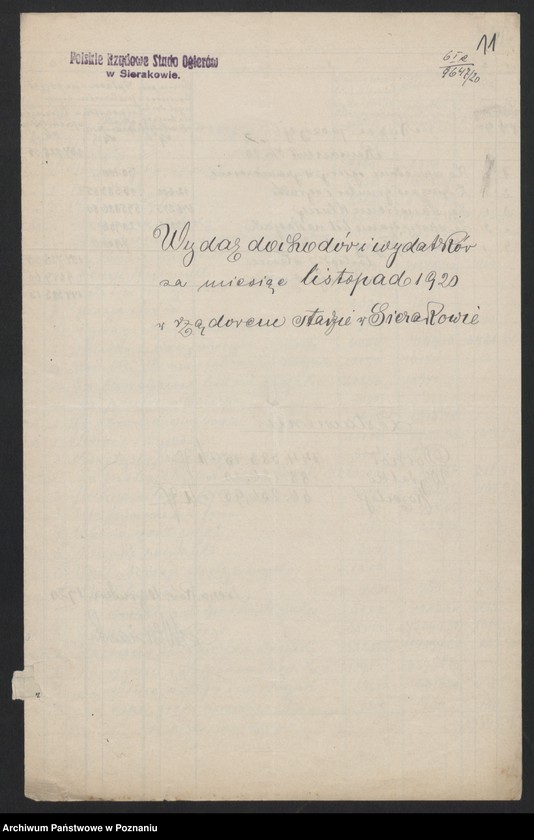 Polskie Rządowe Stado Ogierów
w Sierakowie.
11
6 I a
9647/20
Wydaz dochodów i wydatków
za miesiąc listopad 1920
w rządowem stadzie w Sierakowie
Archiwum Państwowe w Poznaniu